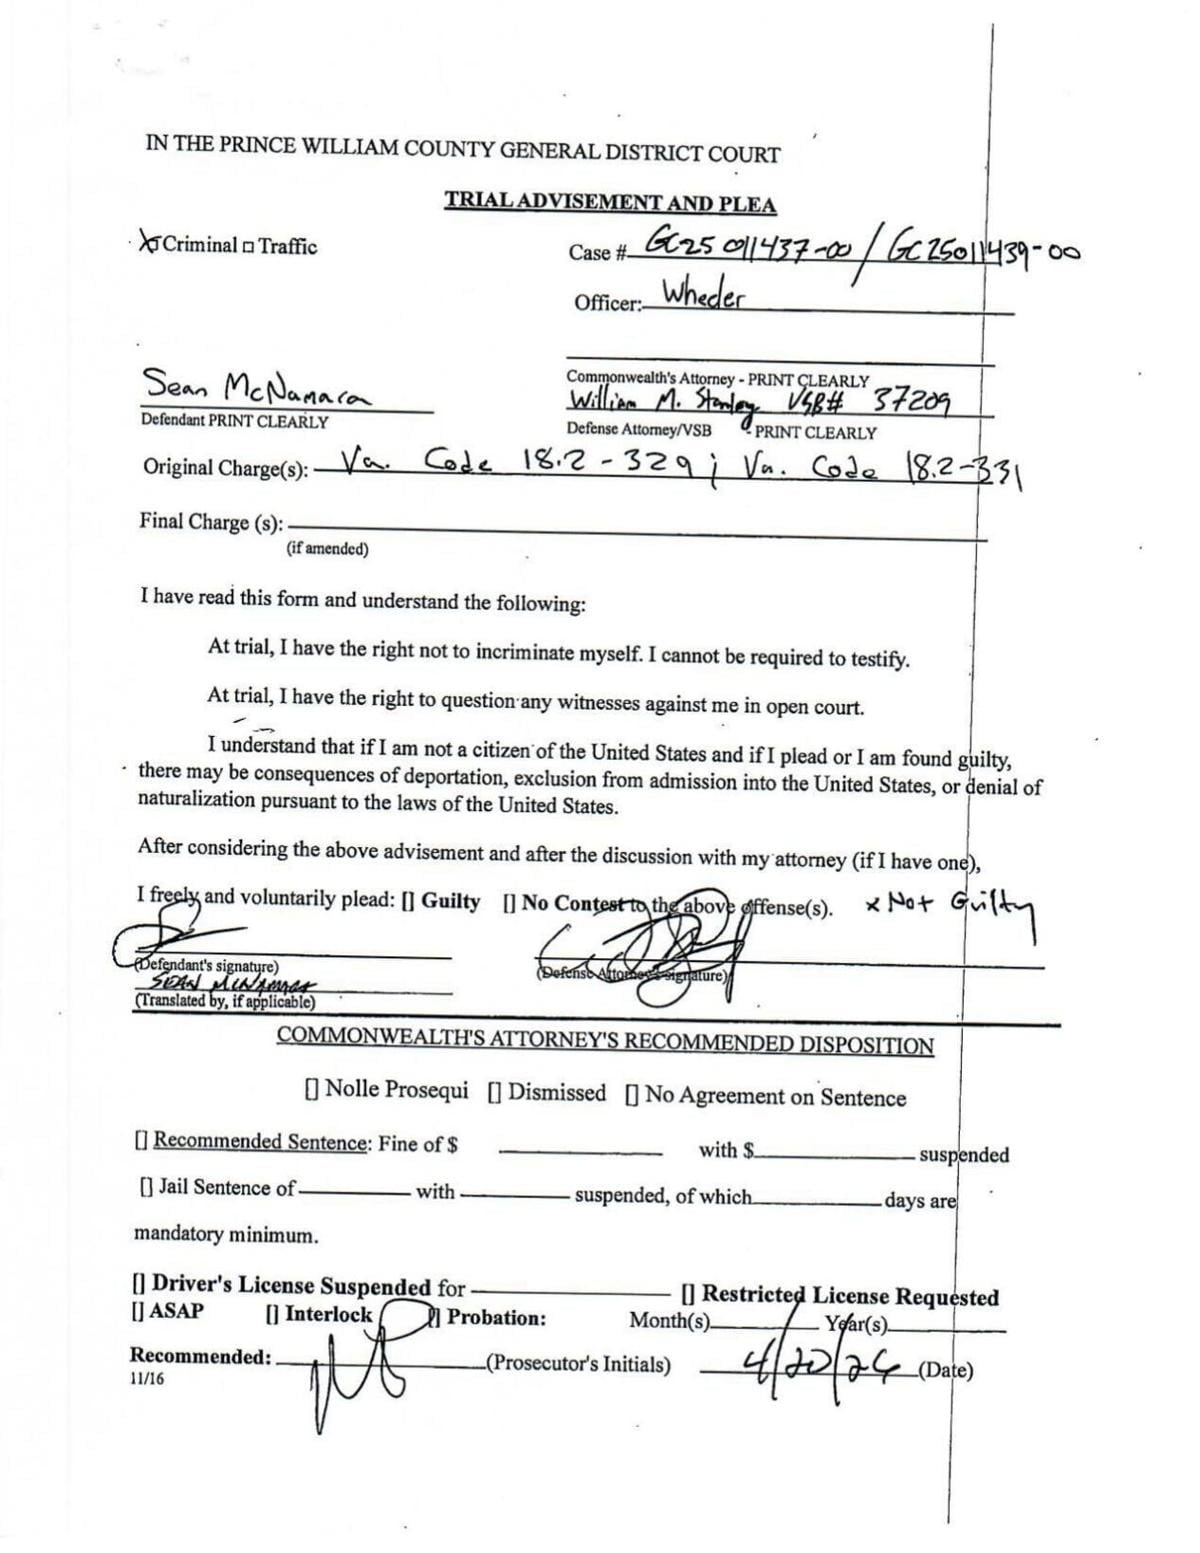 IN THE PRINCE WILLIAM COUNTY GENERAL DISTRICT COURT
TRIAL ADVISEMENT AND PLEA
☒ Criminal □ Traffic
Case # GC25011437-00 / GC25011439-00
Officer: Wheeler
Commonwealth's Attorney - PRINT CLEARLY
Sean McNamara
William M. Stanley VSB# 37209
Defendant PRINT CLEARLY
Defense Attorney/VSB - PRINT CLEARLY
Original Charge(s): Va. Code 18.2-329; Va. Code 18.2-331
Final Charge (s):
(if amended)
I have read this form and understand the following:
At trial, I have the right not to incriminate myself. I cannot be required to testify.
At trial, I have the right to question any witnesses against me in open court.
I understand that if I am not a citizen of the United States and if I plead or I am found guilty,
there may be consequences of deportation, exclusion from admission into the United States, or denial of
naturalization pursuant to the laws of the United States.
After considering the above advisement and after the discussion with my attorney (if I have one),
I freely and voluntarily plead: [] Guilty [] No Contest to the above offense(s). x Not Guilty
(Defendant's signature)
(Defense Attorney's signature)
SEAN McNAMARA
(Translated by, if applicable)
COMMONWEALTH'S ATTORNEY'S RECOMMENDED DISPOSITION
[] Nolle Prosequi [] Dismissed [] No Agreement on Sentence
[] Recommended Sentence: Fine of $ with $ suspended
[] Jail Sentence of with suspended, of which days are
mandatory minimum.
[] Driver's License Suspended for [] Restricted License Requested
[] ASAP [] Interlock [] Probation: Month(s) Year(s)
Recommended: (Prosecutor's Initials) 4/20/26 (Date)
11/16